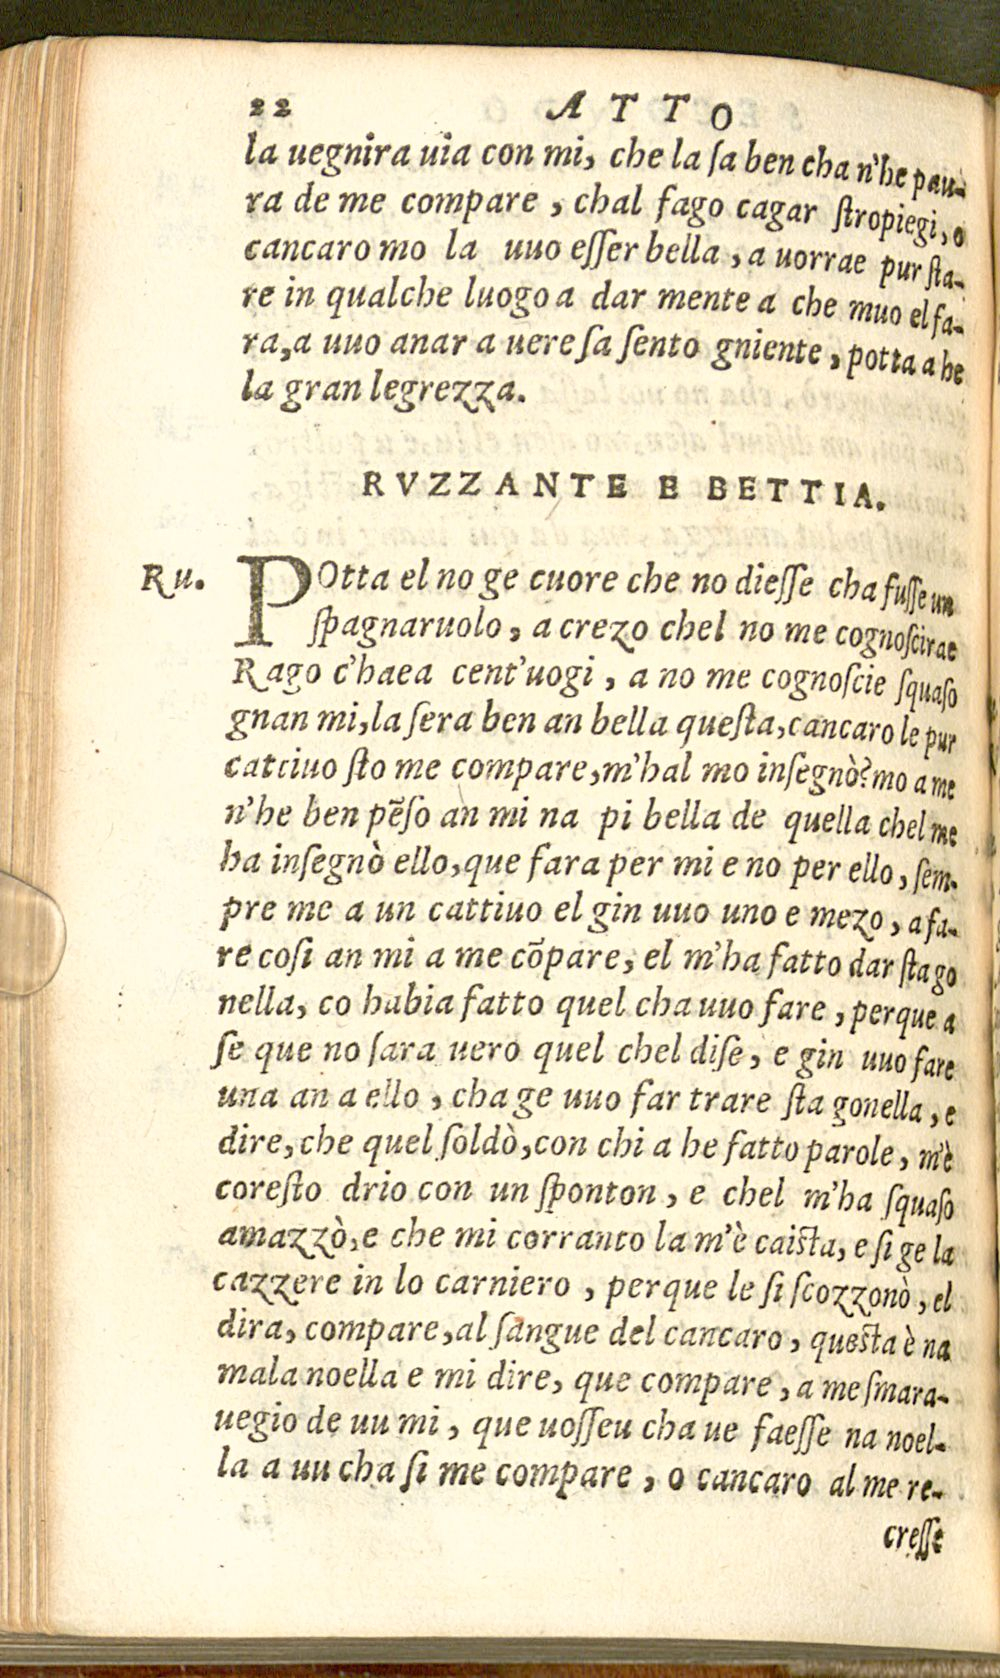 22 ATTO
la uegnira uia con mi, che la ſa ben cha n'he pau-
ra de me compare , chal fago cagar ſtropiegi, o
cancaro mo la uuo eſſer bella , a uorrae pur ſta-
re in qualche luogo a dar mente a che muo el fa-
ra, a uuo anar a uere ſa ſento gniente , potta a he
la gran legrezza.
RVZZANTE E BETTIA.
Ru. POtta el no ge cuore che no dieſſe cha fuſſe un
ſpagnaruolo , a crezo chel no me cognoſcirae
Rago c'haea cent'uogi , a no me cognoſcie ſquaſo
gnan mi, la ſera ben an bella queſta, cancaro le pur
cattiuo ſto me compare, m'hal mo inſegnò? mo a me
n'he ben pẽſo an mi na pi bella de quella chel me
ha inſegnò ello, que fara per mi e no per ello , ſem-
pre me a un cattiuo el gin uuo uno e mezo , a fa-
re coſi an mi a me cõpare, el m'ha fatto dar ſta go
nella, co habia fatto quel cha uuo fare , perque a
ſe que no ſara uero quel chel diſe, e gin uuo fare
una an a ello , cha ge uuo far trare ſta gonella , e
dire, che quel ſoldò, con chi a he fatto parole, m'è
coreſto drio con un ſponton , e chel m'ha ſquaſo
amazzò, e che mi corranto la m'è caiſta, e ſi ge la
cazzere in lo carniero , perque le ſi ſcozzonò , el
dira, compare, al ſangue del cancaro , queſta è na
mala noella e mi dire, que compare , a me ſmara-
uegio de uu mi , que uoſſeu cha ue faeſſe na noel-
la a uu cha ſi me compare , o cancaro al me re-
creſſe